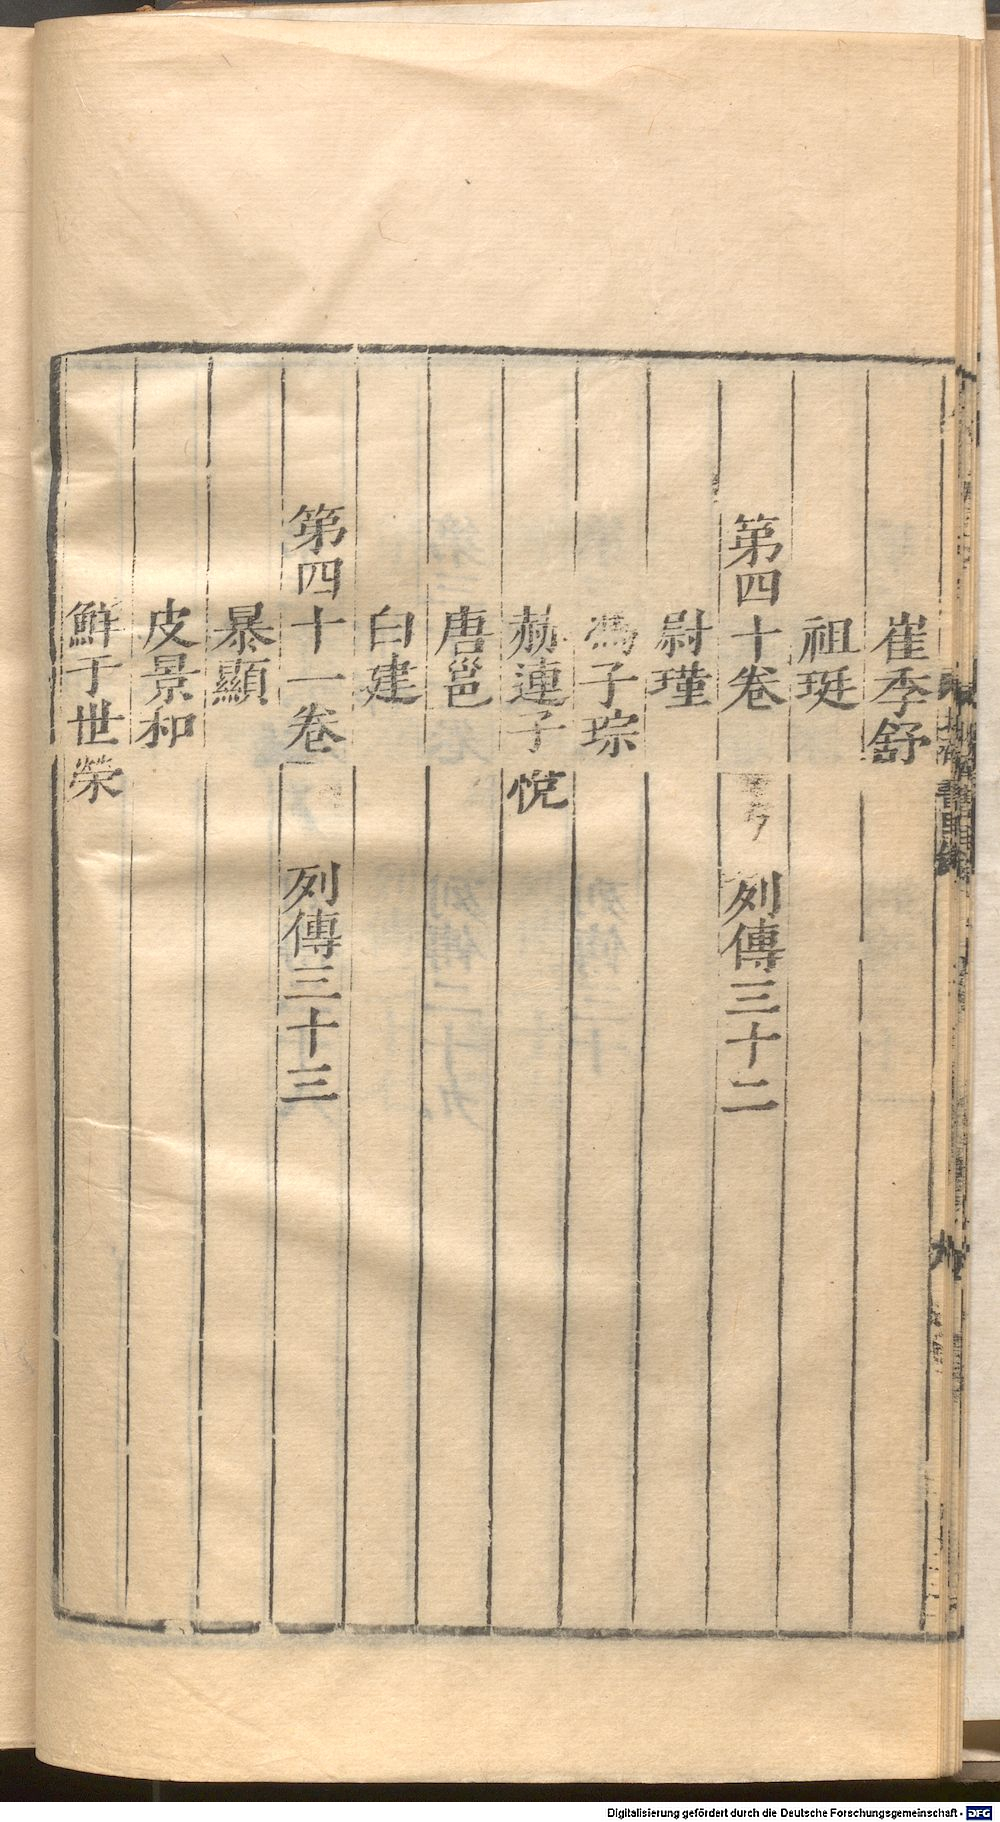 崔季舒
祖珽
第四十卷 列傳三十二
尉瑾
馮子琮
赫連子悅
唐邕
白建
第四十一卷 列傳三十三
暴顯
皮景和
鮮于世榮
Digitalisierung gefördert durch die Deutsche Forschungsgemeinschaft - DFG